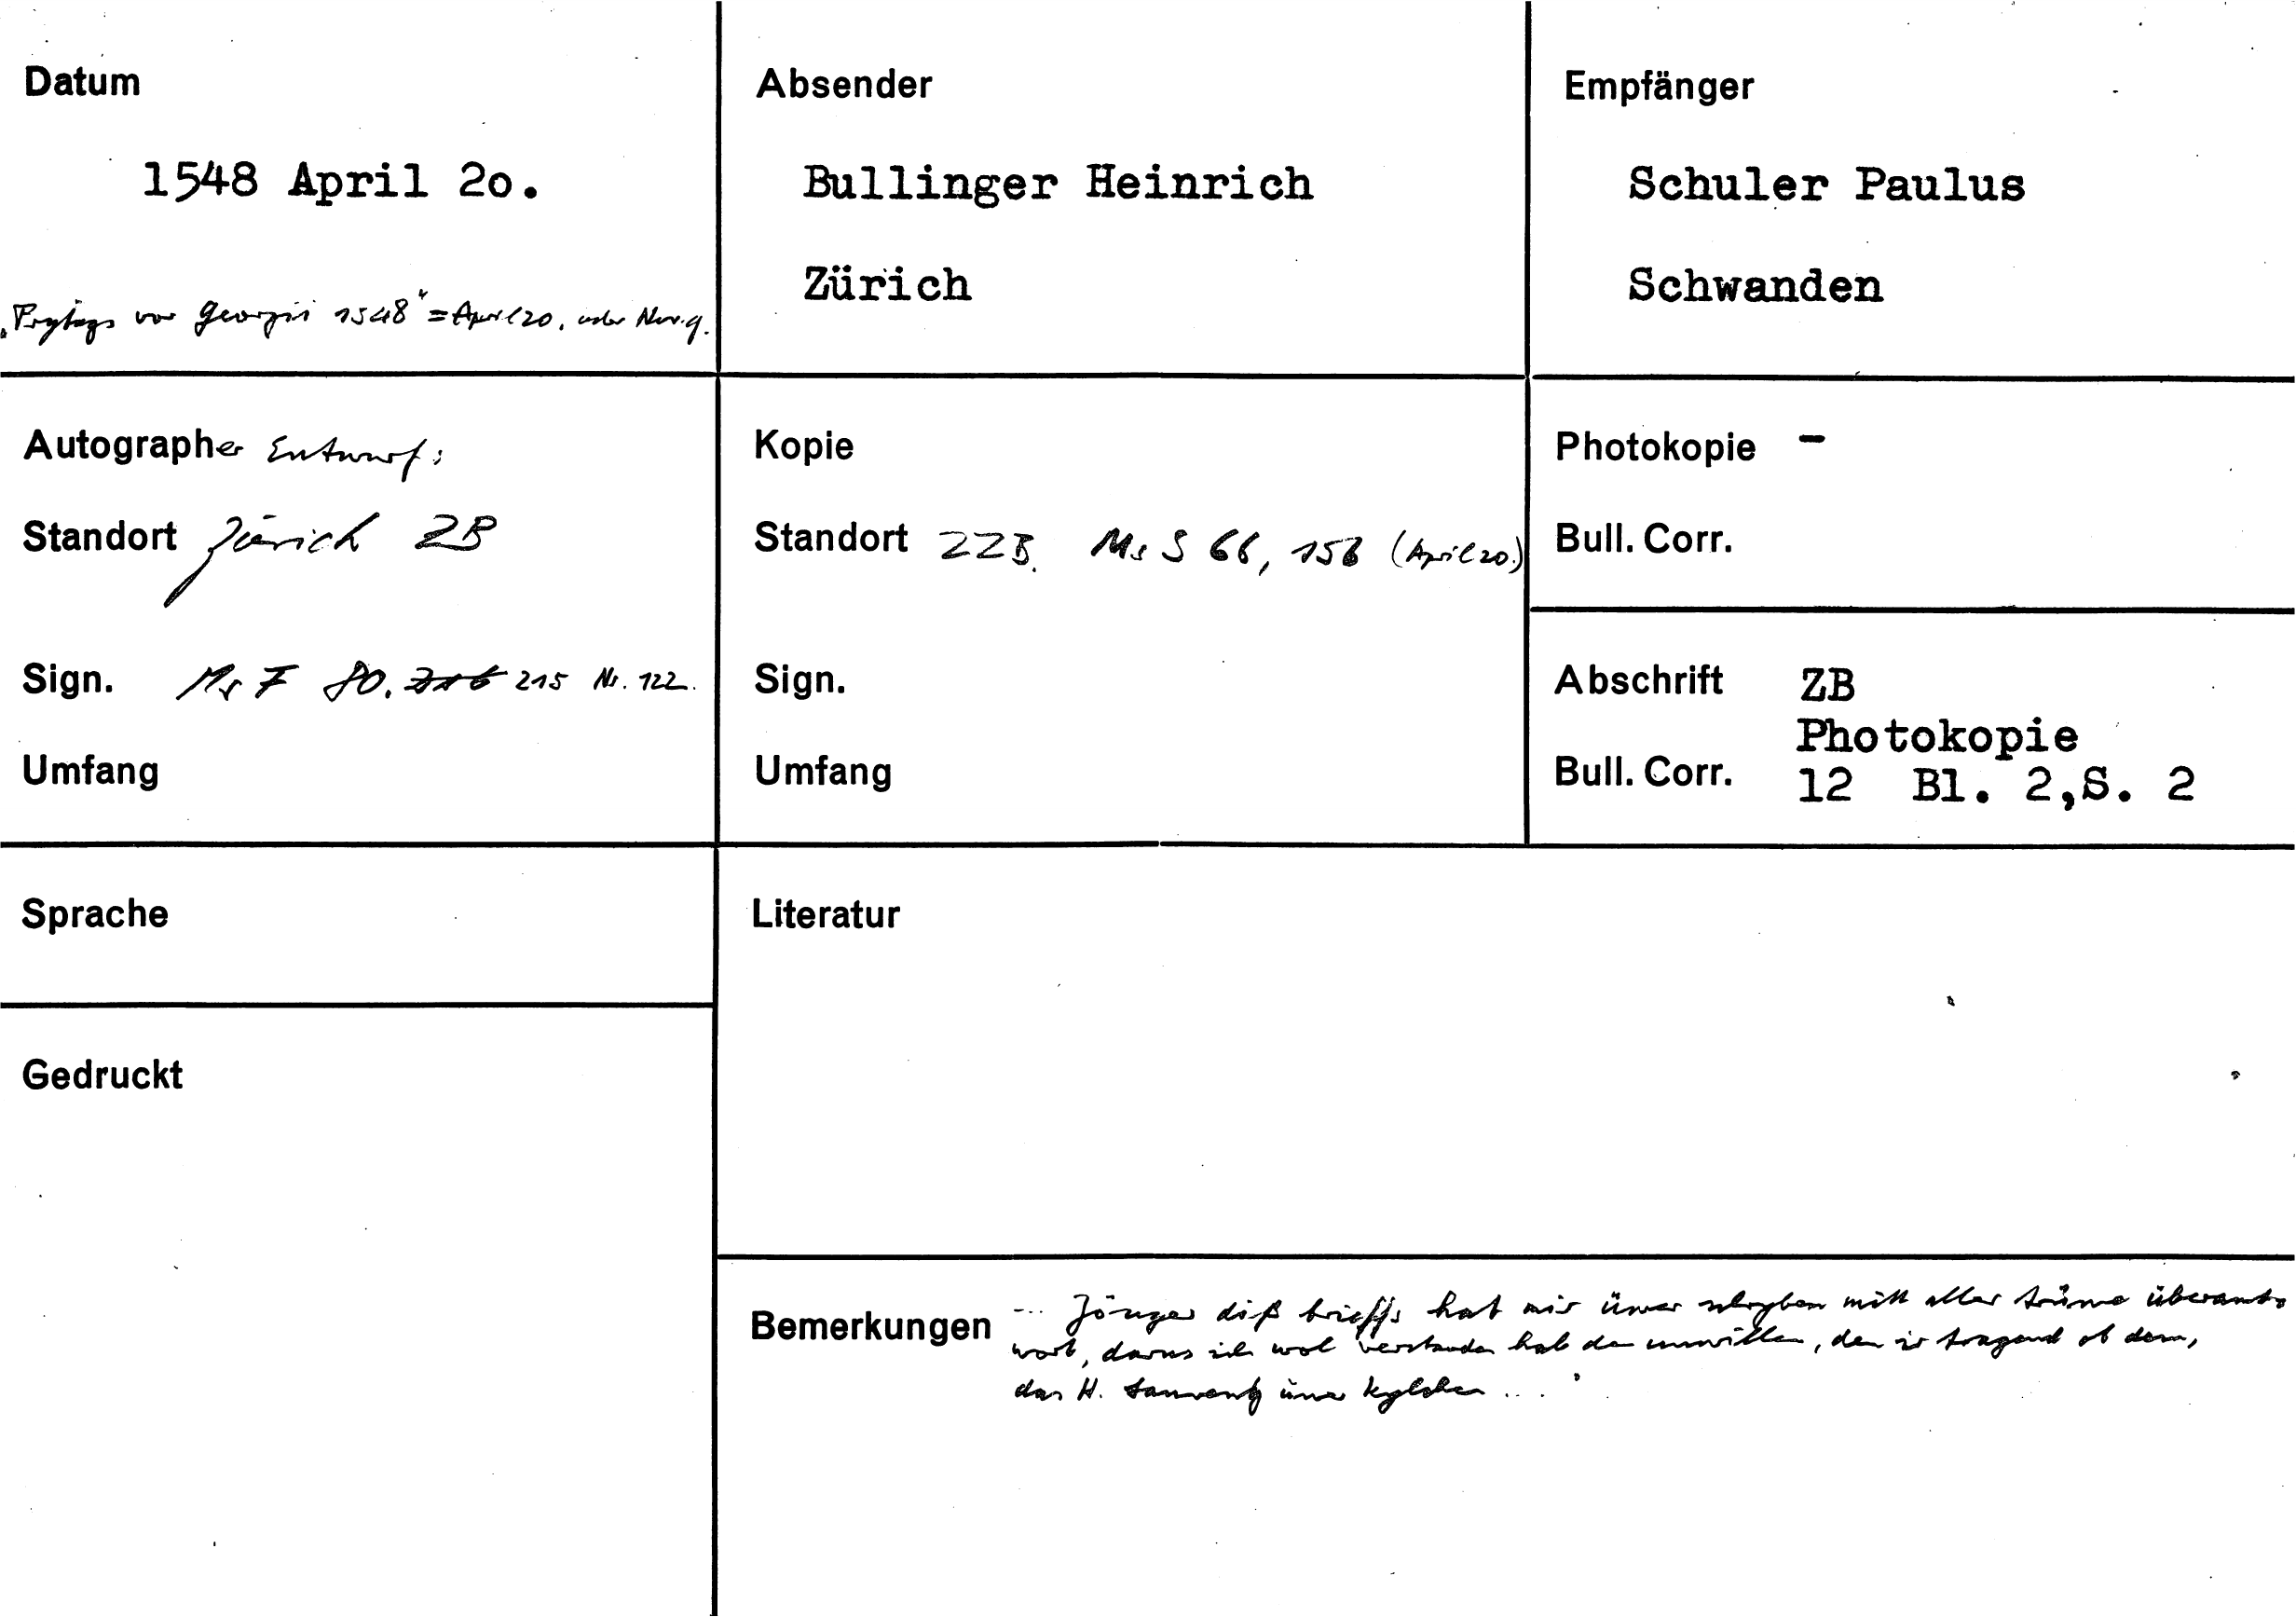 Datum
1548 April 2o.
„Frytags vor Georgii 1548“ = April 20. oder Nov. 9.
Absender
Bullinger Heinrich
Zürich
Empfänger
Schuler Paulus
Schwanden
Autographer Entwurf:
Standort Zürich ZB
Sign. Ms F 80. 215 Nr. 122.
Umfang
Kopie
Standort ZZB. Ms S 66, 156 (April 20.)
Sign.
Umfang
Photokopie -
Bull. Corr.
Abschrift ZB
Photokopie
Bull. Corr. 12 Bl. 2,S. 2
Sprache
Gedruckt
Literatur
Bemerkungen ... diß brieffs hat mir üwer schryben mitt aller trüwe überant-
wort, darus ich wol verstanden hab den unwillen, den ir tragend ob dem,
das H. üwer kylchen ...